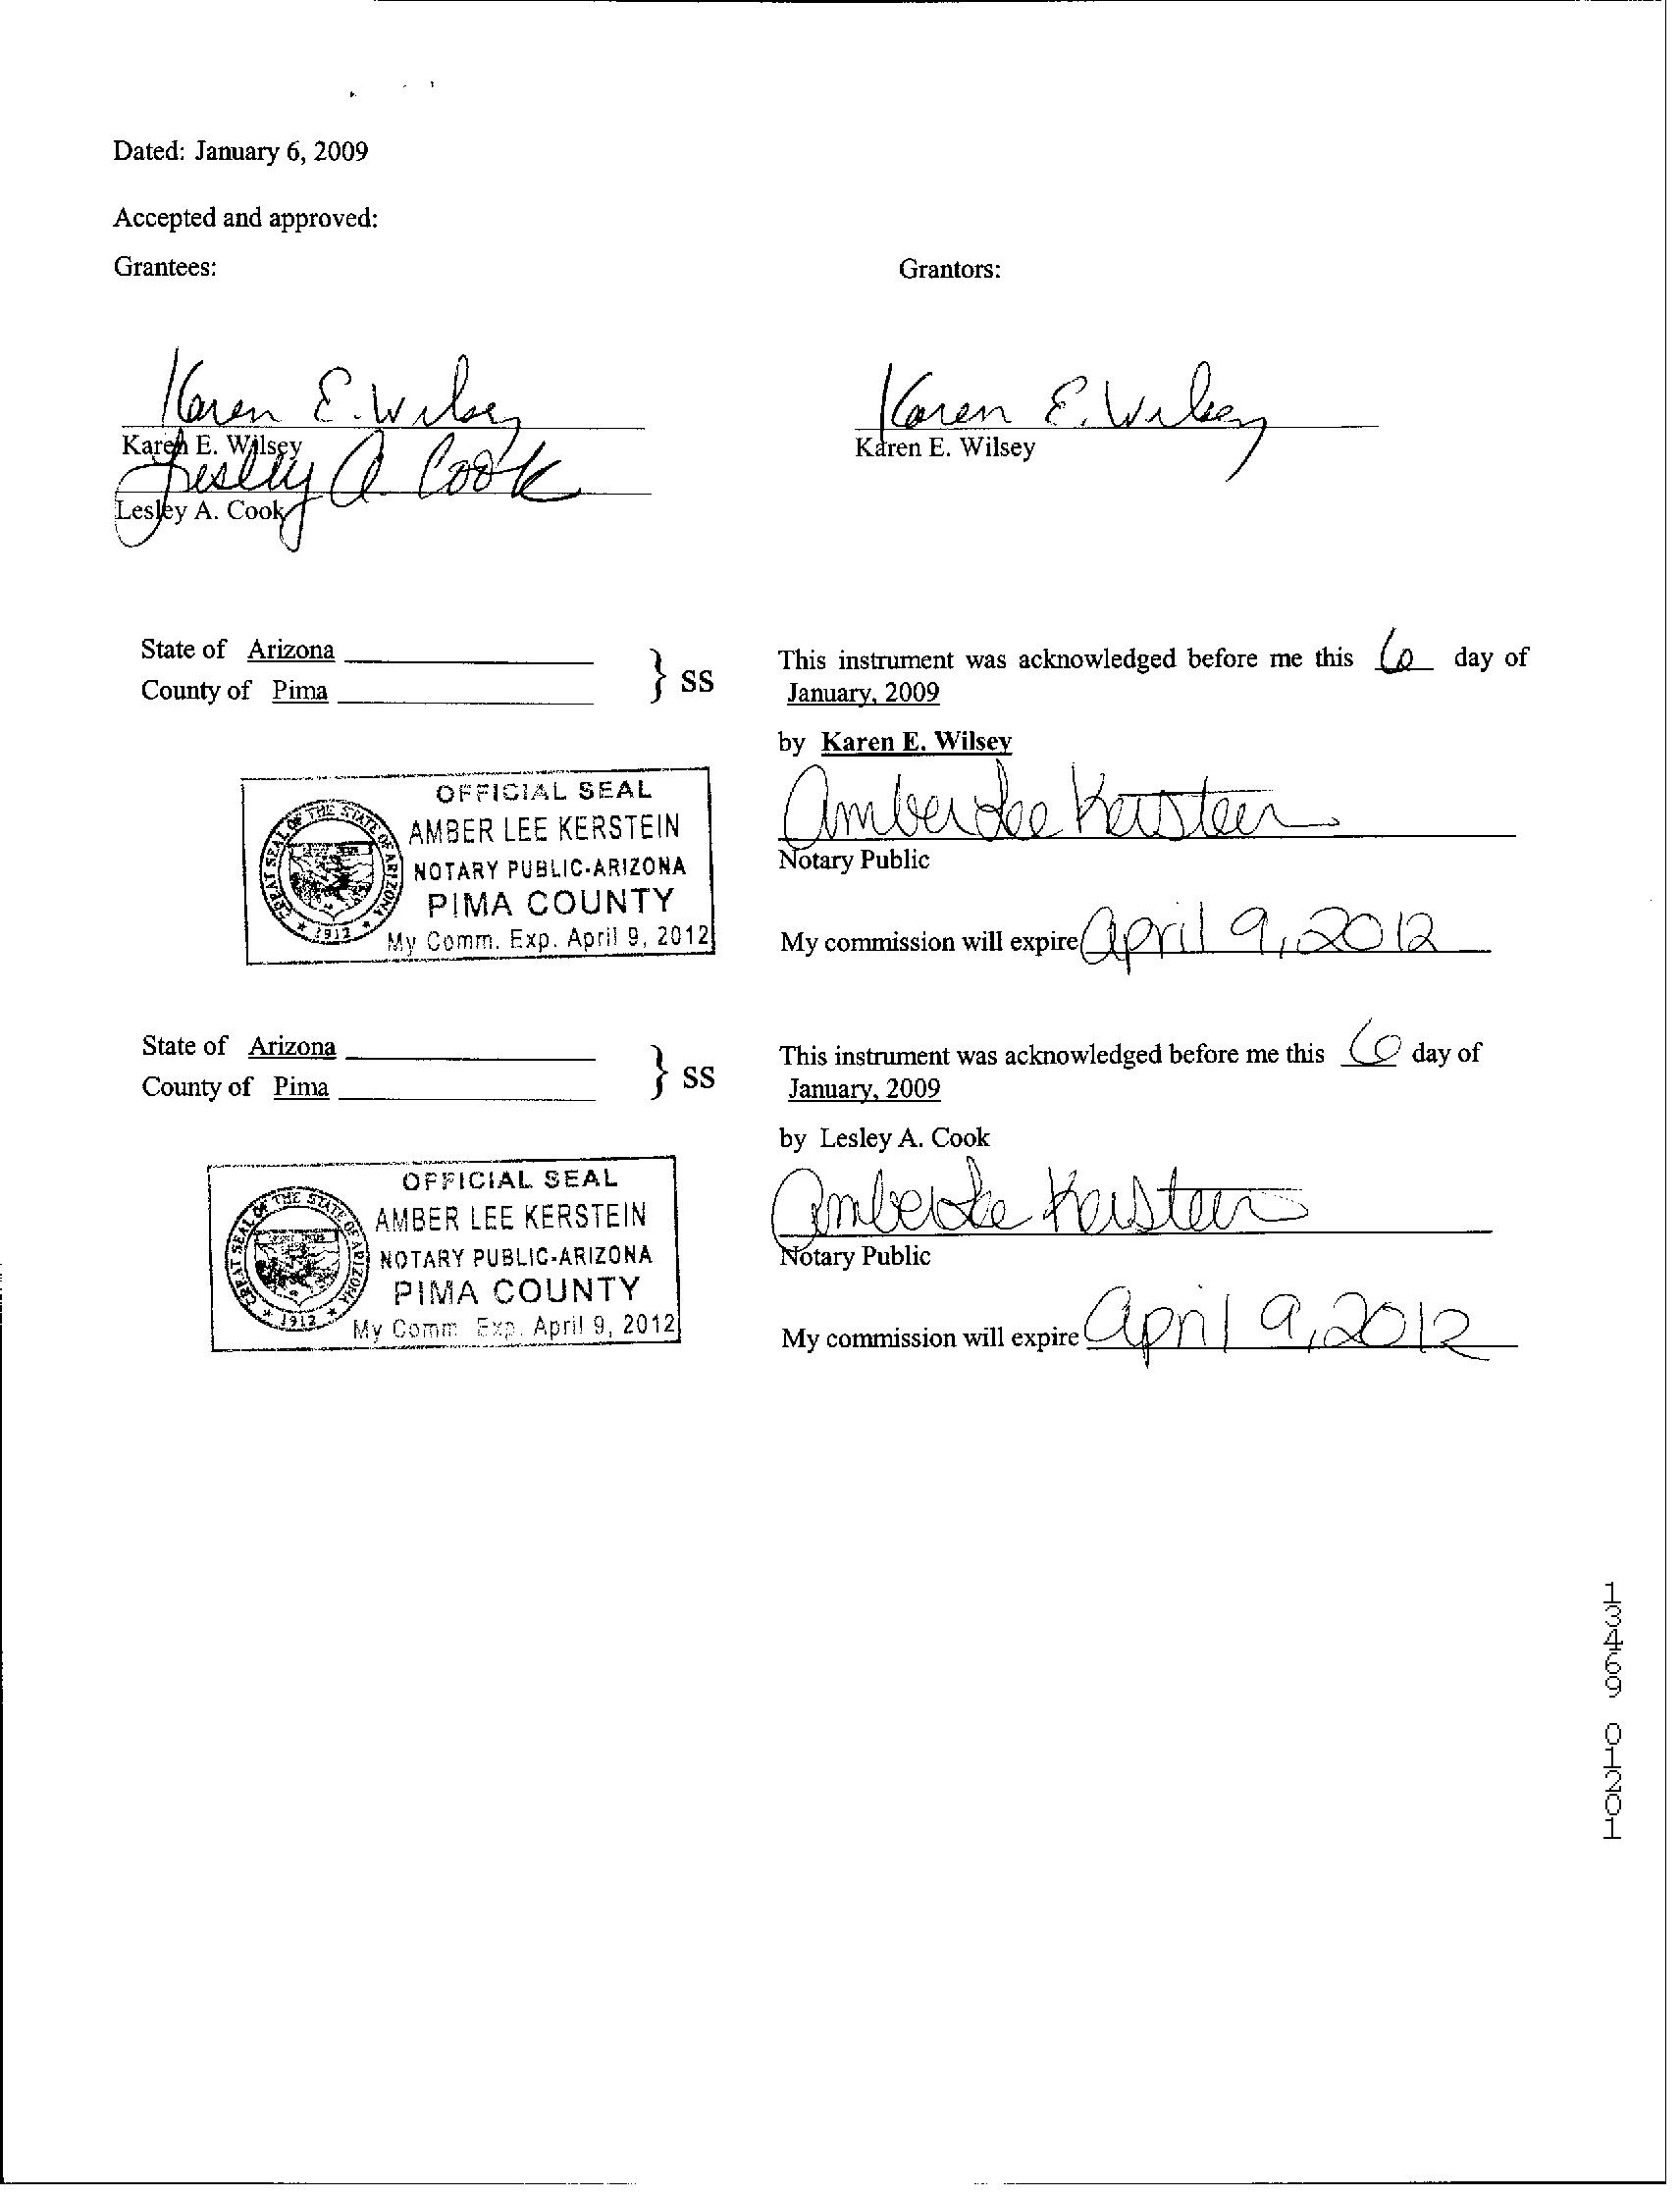 Dated: January 6, 2009
Accepted and approved:
Grantees:
Grantors:
Karen E. Wilsey
Karen E. Wilsey
Karen E. Wilsey
Karen E. Wilsey
Lesley A. Cook
Lesley A. Cook
State of Arizona
County of Pima
} SS
This instrument was acknowledged before me this 6 day of
January, 2009
by Karen E. Wilsey
Amber Lee Kerstein
Notary Public
My commission will expire April 9, 2012
OFFICIAL SEAL
AMBER LEE KERSTEIN
NOTARY PUBLIC-ARIZONA
PIMA COUNTY
My Comm. Exp. April 9, 2012
GREAT SEAL OF THE STATE OF ARIZONA
1912
State of Arizona
County of Pima
} SS
This instrument was acknowledged before me this 6 day of
January, 2009
by Lesley A. Cook
Amber Lee Kerstein
Notary Public
My commission will expire April 9, 2012
OFFICIAL SEAL
AMBER LEE KERSTEIN
NOTARY PUBLIC-ARIZONA
PIMA COUNTY
My Comm. Exp. April 9, 2012
GREAT SEAL OF THE STATE OF ARIZONA
1912
13469 01201